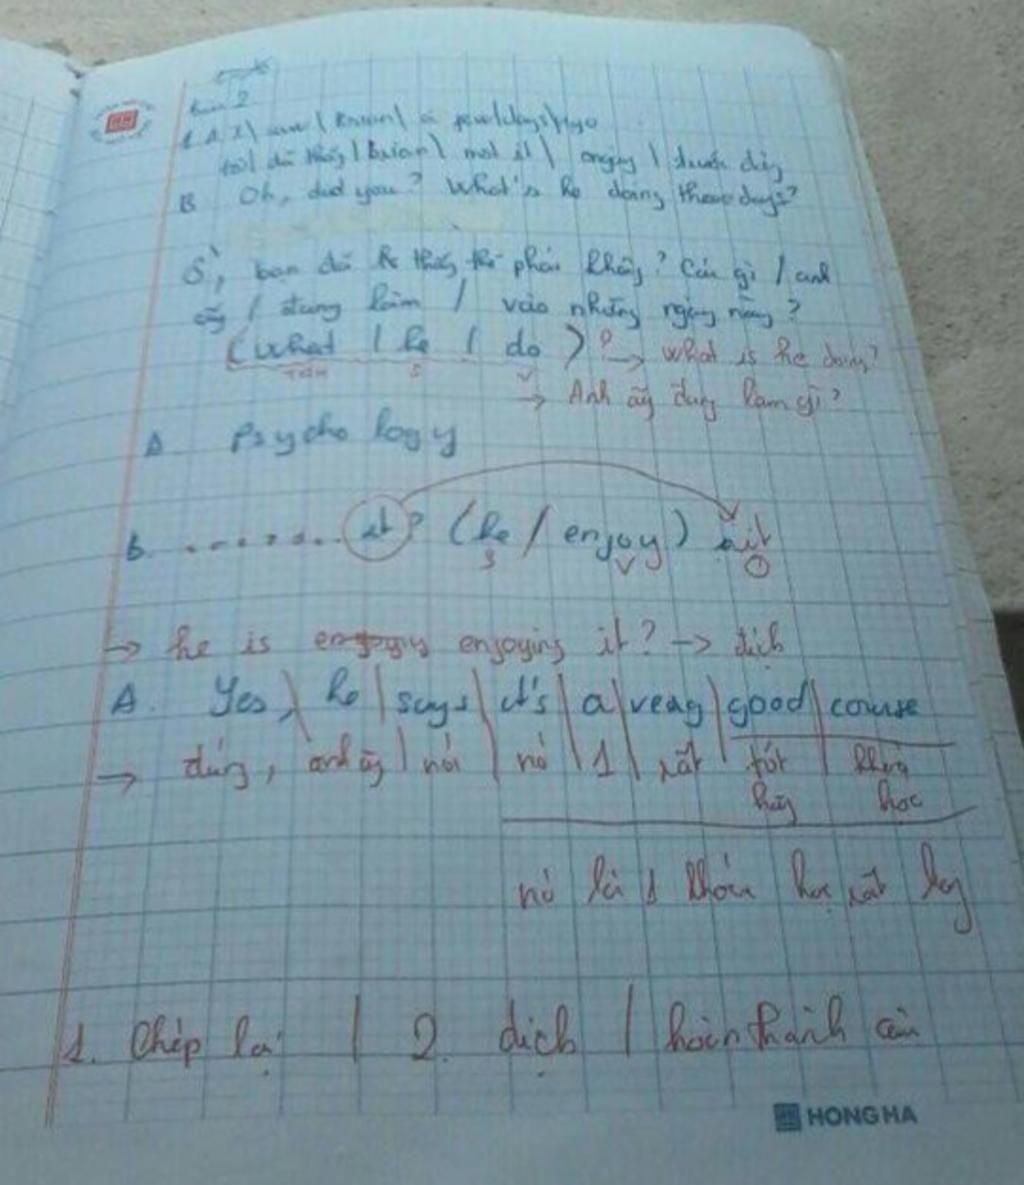 Bài 2
1. A. I \ saw \ Brian \ a few \ days \ ago
tôi \ đã thấy \ Brian \ một ít \ ngày \ trước đây
B Oh, did you? What's he doing these days?
Ồ, bạn đã thấy phải không? Cái gì / anh
ấy / đang làm / vào những ngày này?
(What / he / do)? → What is he doing?
S V
→ Anh ấy đang làm gì?
A Psychology
B. ........ it? (he / enjoy) it
S V O
→ he is enjoying it? → dịch
A. Yes, \ he \ says \ it's \ a \ very \ good \ course
→ đúng, anh ấy \ nói \ nó \ 1 \ rất \ tốt \ khóa
hay học
nó là 1 khóa học rất hay
1. Chép lại | 2. dịch | hoàn thành câu
HONG HA